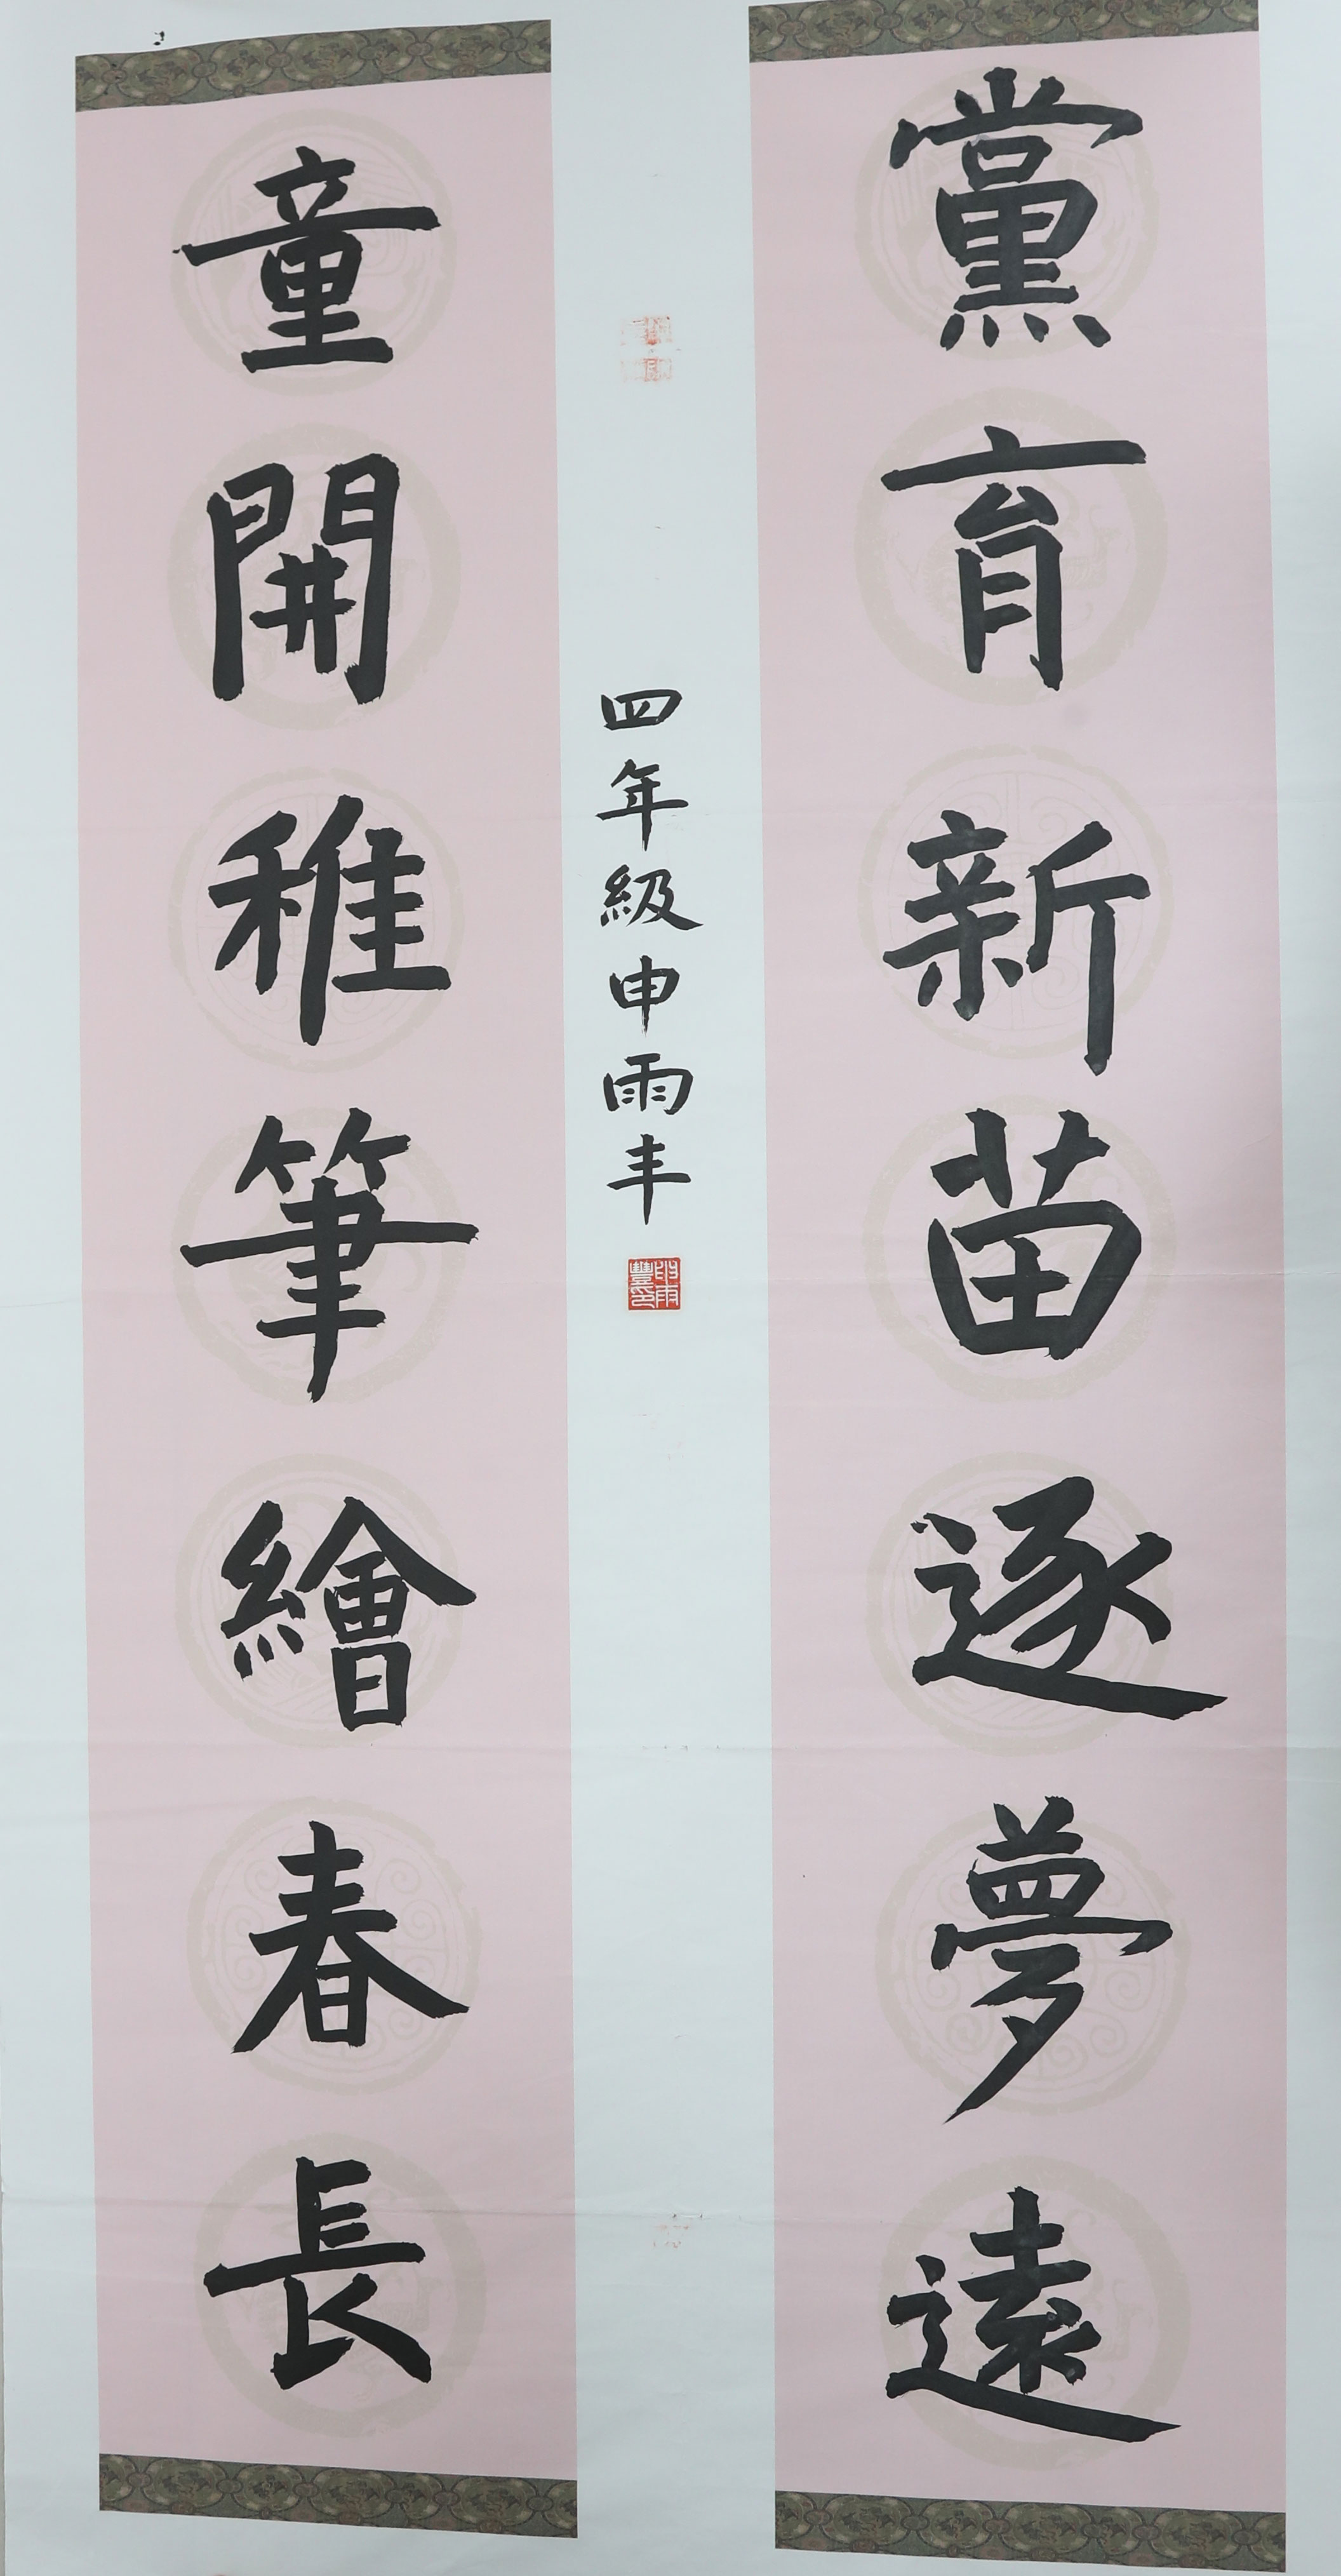 黨育新苗逐夢遠
童開稚筆繪春長
四年級申雨丰